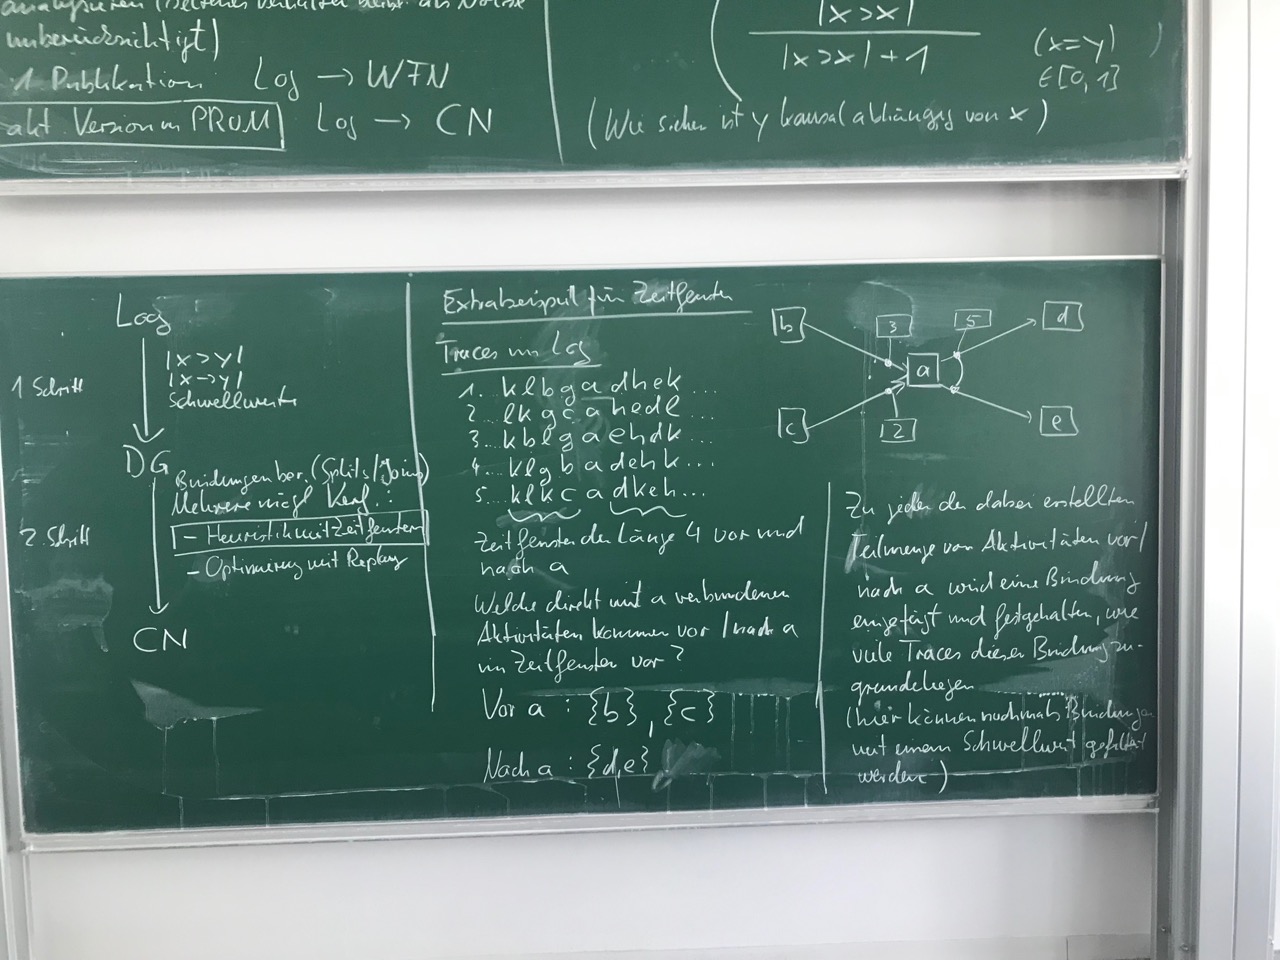 unberücksichtigt)
1 Publikation Log → WFN
akt. Version in PROM Log → CN
|x>x|
|x>x|+1
(x=y)
∈[0,1]
(Wie sicher ist y kausal abhängig von x)
Log
1 Schritt
|x>y|
|x→y|
Schwellwerte
DG
Bindungen ber. (Splits/Joins)
Mehrere mögl Verf.:
2. Schritt
- Heuristik mit Zeitfenstern
- Optimierung mit Replay
CN
Extrabeispiel für Zeitfenster
Traces im Log
1... klbgadhek...
2... lkgcahedl...
3... kblgaehdk...
4... klgbadehk...
5... klkcadkeh...
Zeitfenster der Länge 4 vor und
nach a
Welche direkt mit a verbundenen
Aktivitäten kommen vor/nach a
im Zeitfenster vor?
Vor a : {b}, {c}
Nach a : {d,e}
b
3
5
d
a
c
2
e
Zu jeder der dabei erstellten
Teilmenge von Aktivitäten vor/
nach a wird eine Bindung
eingefügt und festgehalten, wie
viele Traces dieser Bindung zu-
grundeliegen
(hier können nochmals Bindungen
mit einem Schwellwert gefiltert
werden)